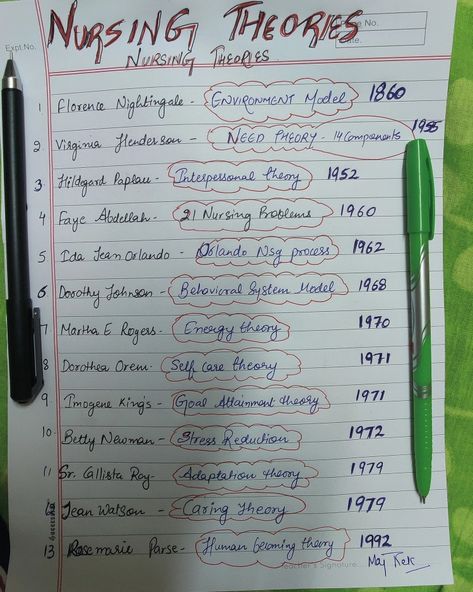 NURSING THEORIES
Expt. No.
Page No.
Date.
NURSING THEORIES
1 Florence Nightingale - ENVIRONMENT Model 1860
2. Virginia Henderson - NEED THEORY - 14 Components 1955
3. Hildegard Paplau - Interpersonal theory 1952
4 Faye Abdellah - 21 Nursing Problems 1960
5 Ida Jean Orlando - Orlando Nsg process 1962
6 Dorothy Johnson - Behavioral System Model 1968
7 Martha E Rogers - Energy theory 1970
8 Dorothea Orem - Self care theory 1971
9. Imogene King's - Goal Attainment theory 1971
10. Betty Newman - Stress Reduction 1972
11 Sr. Callista Roy - Adaptation theory 1979
12 Jean Watson - Caring Theory 1979
13 Rosemarie Parse - Human becoming theory 1992
Teacher's Signature